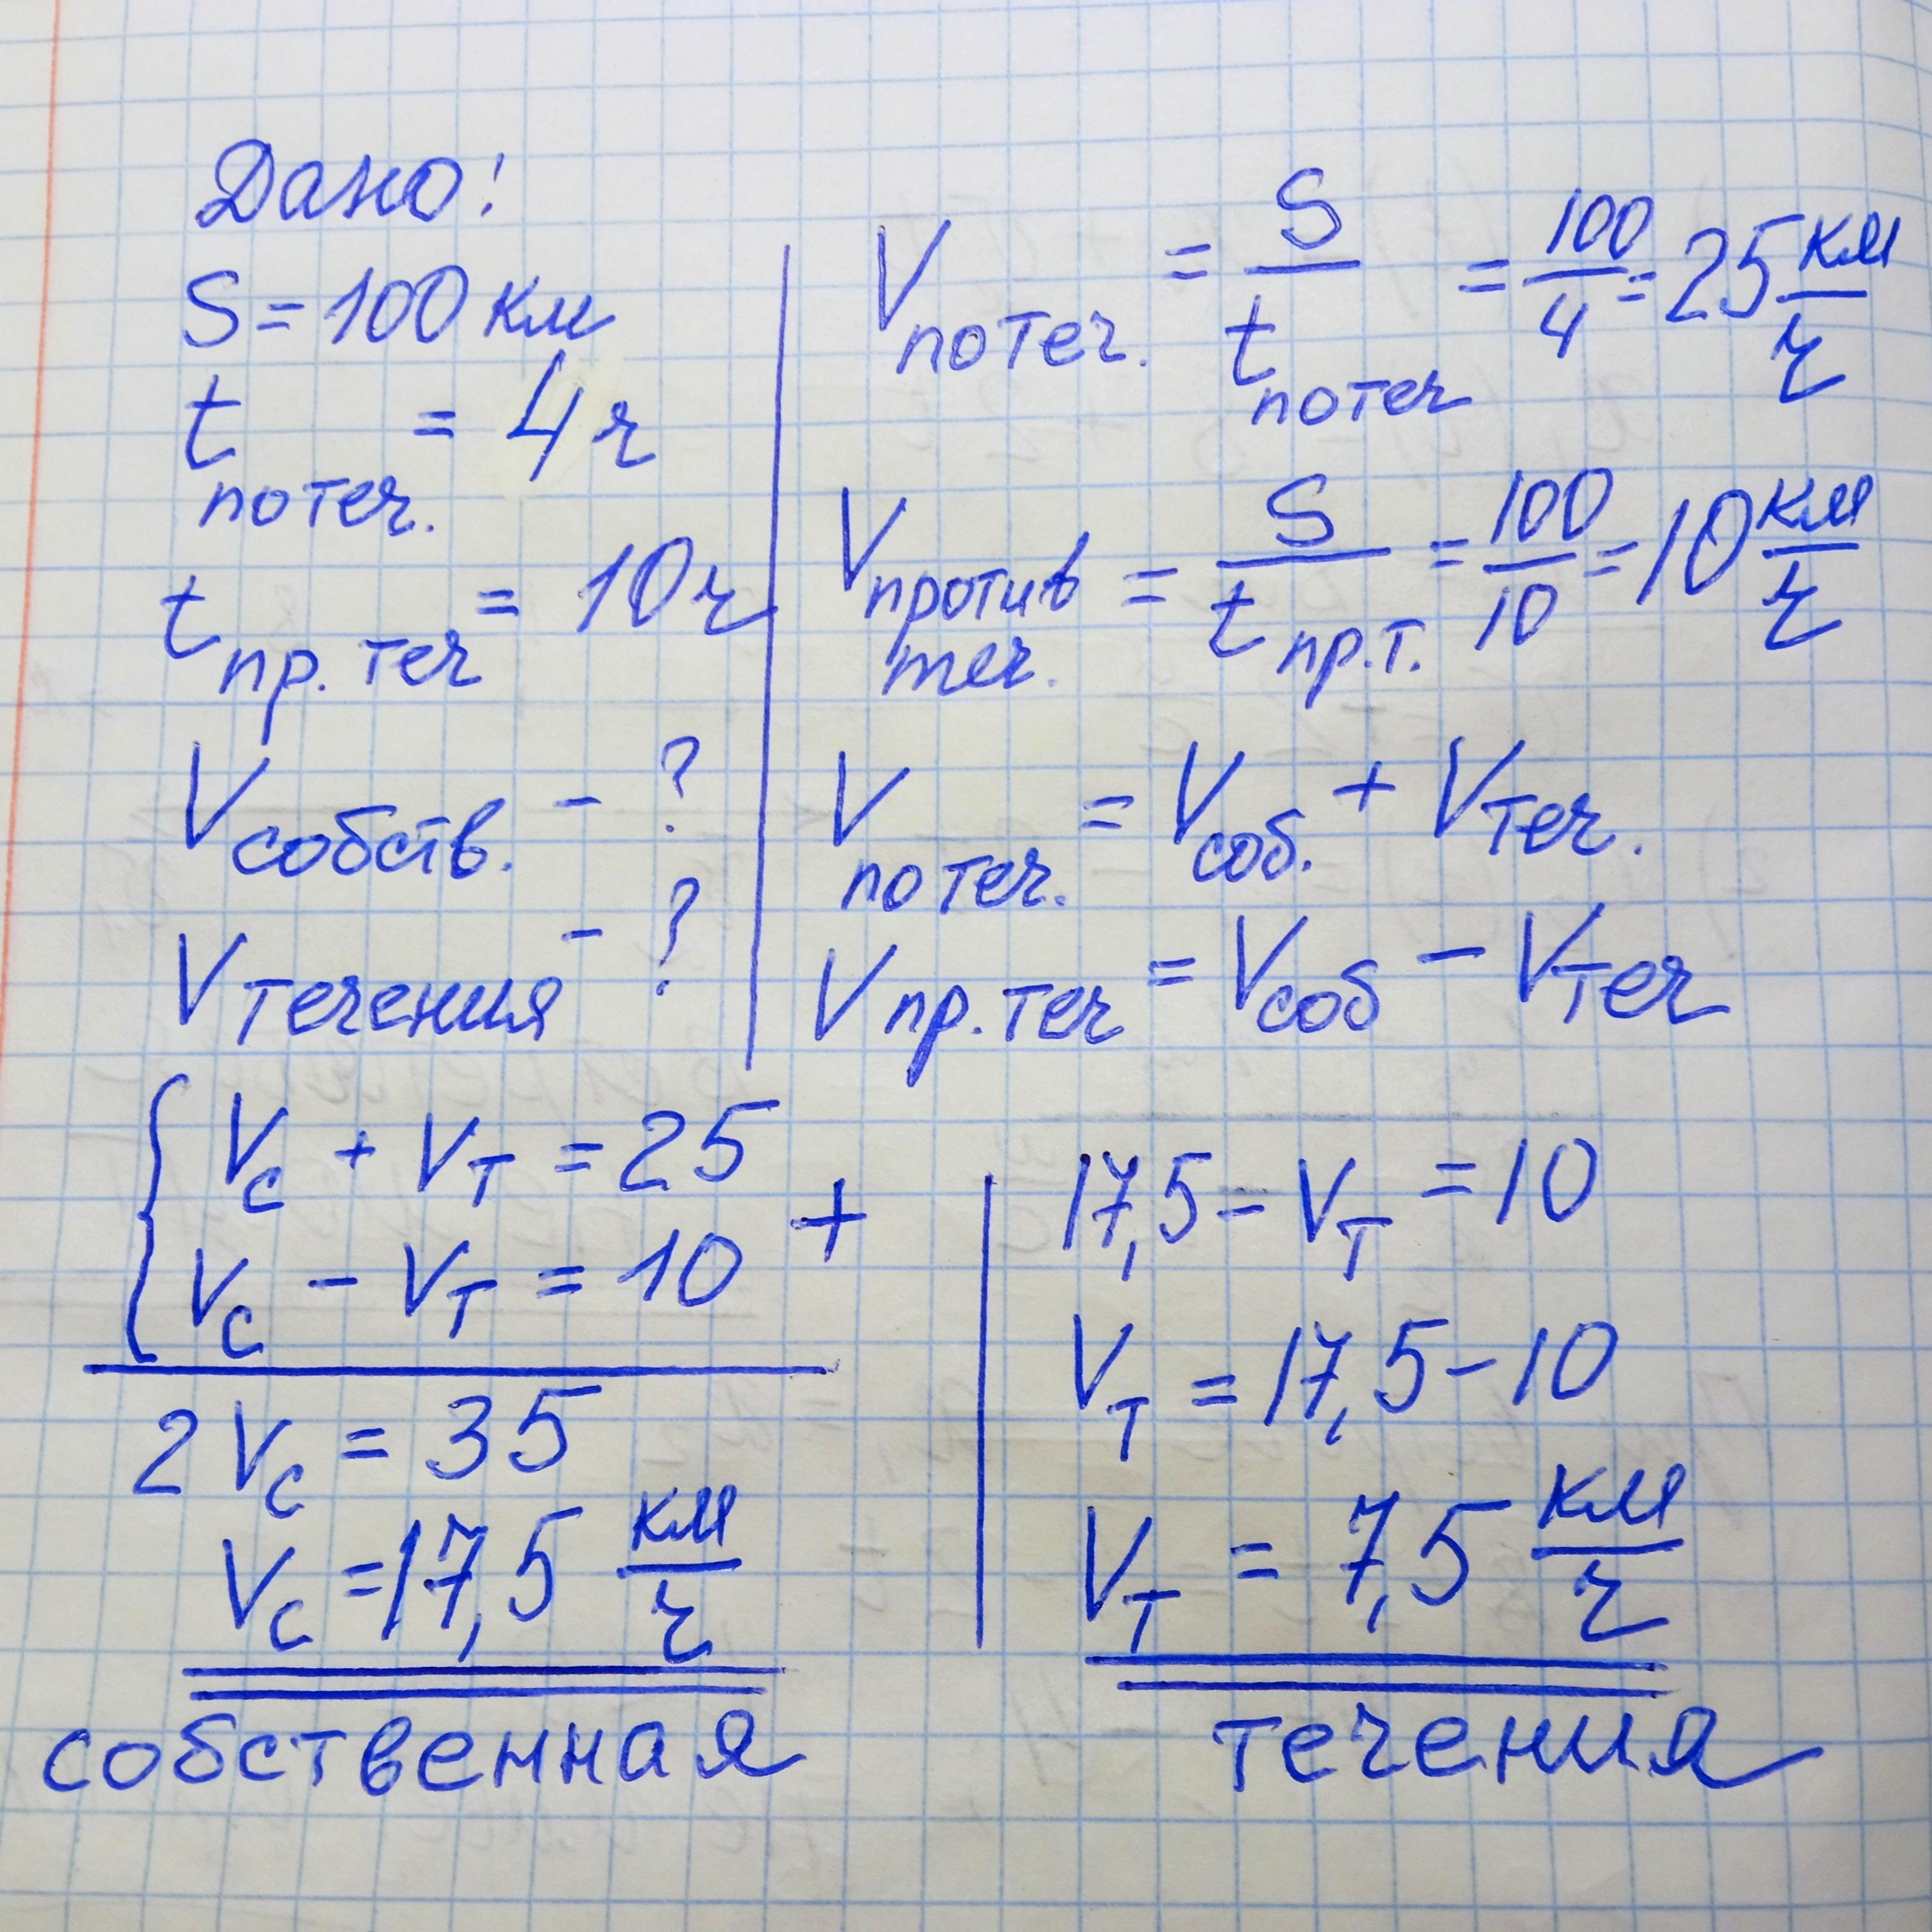 Дано:
S = 100 км
t по теч. = 4 ч
t пр. теч = 10 ч
V собств. - ?
V течения - ?
V по теч. = S / t по теч = 100 / 4 = 25 км/ч
V против теч. = S / t пр.т. = 100 / 10 = 10 км/ч
V по теч. = V соб. + V теч.
V пр. теч = V соб - V теч
{ Vс + Vт = 25
Vс - Vт = 10 +
2 Vс = 35
Vс = 17,5 км/ч
собственная
17,5 - Vт = 10
Vт = 17,5 - 10
Vт = 7,5 км/ч
течения